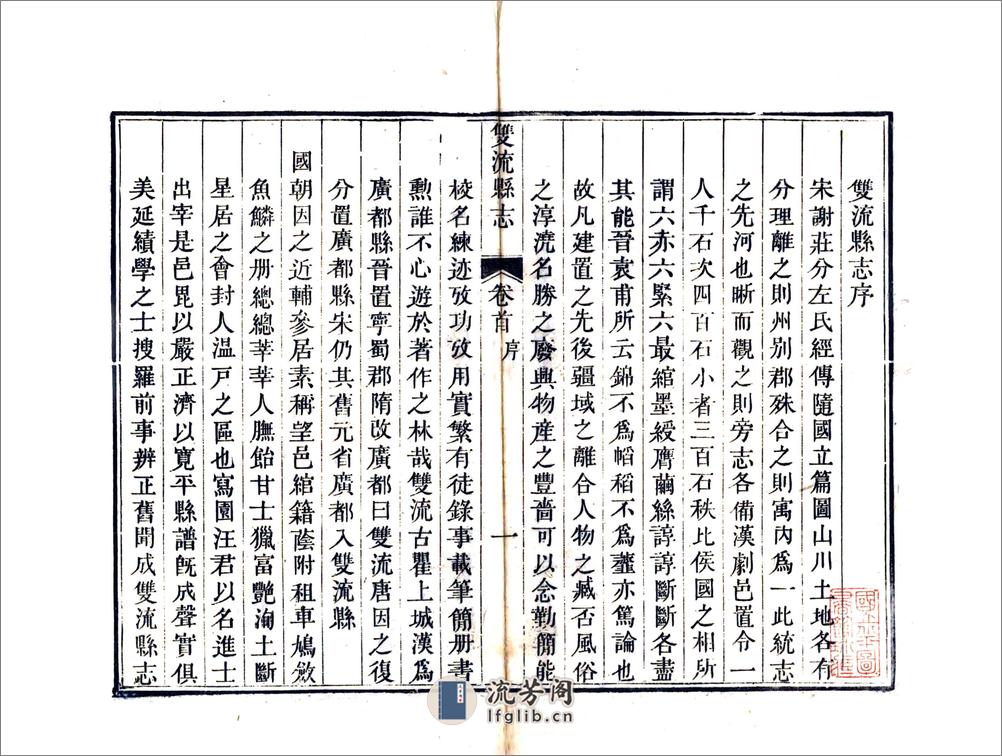 雙流縣志序
宋謝莊分左氏經傳隨國立篇圖山川土地各有
分理離之則州别郡殊合之則寓內爲一此統志
之先河也晰而觀之則旁志各備漢劇邑置令一
人千石次四百石小者三百石秩比侯國之相所
謂六赤六緊六最綰墨綬膺繭絲諄諄斷斷各盡
其能晉袁甫所云錦不爲幍稻不爲虀亦篤論也
故凡建置之先後疆域之離合人物之臧否風俗
之淳澆名勝之廢興物産之豐嗇可以念勤簡能
雙流縣志
卷首
序
一
稜名練迹攷功攷用實繁有徒錄事載筆簡册書
勲誰不心遊於著作之林哉雙流古瞿上城漢爲
廣都縣晉置寧蜀郡隋改廣都曰雙流唐因之復
分置廣都縣宋仍其舊元省廣都入雙流縣
國朝因之近輔參居素稱望邑綰籍蔭附租車鳩斂
魚鱗之册總總莘莘人膴飴甘士獵富艷洵土斷
星居之會封人温戸之區也寫園汪君以名進士
出宰是邑毘以嚴正濟以寬平縣譜旣成聲實俱
美延績學之士搜羅前事辨正舊聞成雙流縣志
流芳阁
lfglib.cn